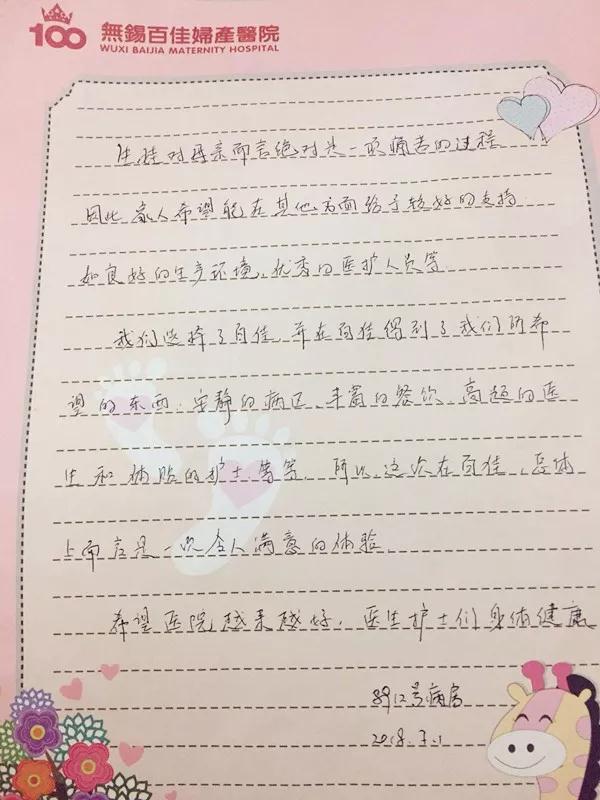 100 無錫百佳婦產醫院
WUXI BAIJIA MATERNITY HOSPITAL
生娃对母亲而言绝对是一项痛苦的过程
因此家人希望能在其他方面给予较好的支持
如良好的生产环境、优秀的医护人员等
我们选择了百佳,并在百佳得到了我们所希
望的东西:安静的病区、丰富的餐饮、高超的医
生和体贴的护士等等,所以这次在百佳,总体
上而言是一次令人满意的体验.
希望医院越来越好,医生护士们身体健康
8912号病房
2018.7.1